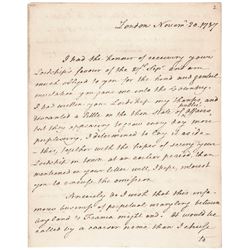 2
London Novemr. 20. 1787
I had the honour of receiving your
Lordship's favour of the 21st Sepr. and am
much obliged to you for the kind and
invitation you gave me into the Country.
I had written your Lordship my thanks, and
ventured a little on the then State of public Affairs,
but they appearing every day more & more
perplexing, I determined to lay it aside —
this, together with the hopes of seeing your
Lordship in town at an earlier period, than
mentioned in your letter, will, I hope, induce
you to excuse the omission.
Sincerely do I wish that this
of perpetual wrangling between
England & France might end. It would be
called by a coarser name than I chuse
to